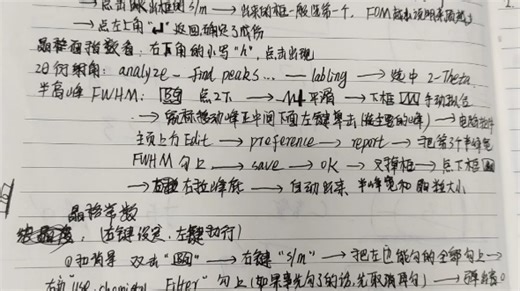 → 点击 出框的 s/m → 出来的框一般选第一个, FOM
→ 点左上角"↵"返回确定了成份
晶粒面指数者: 右下角的小写"h", 点击出现
2θ衍射角: analyze — find peaks... — labling → 选中 2-Theta
半高峰 FWHM: 点2下 → 平滑 → 下框 手动拟合
→ 鼠标移动峰正中间下面左键单击(选主要的峰) →
主页上方Edit → preference → report → 把第3个半峰宽
FWHM 勾上 → save → OK → 叉掉框 → 点下框
→ 右拉峰底 → 自动出来, 半峰宽和晶粒大小
晶格常数
(右键设定, 左键执行)
①扣背景 双击" " → 右键"s/m" → 把左边能勾的全部勾上 →
右方"use chemistry Filter"勾上(如果事先勾了的话, 先取消再勾) →